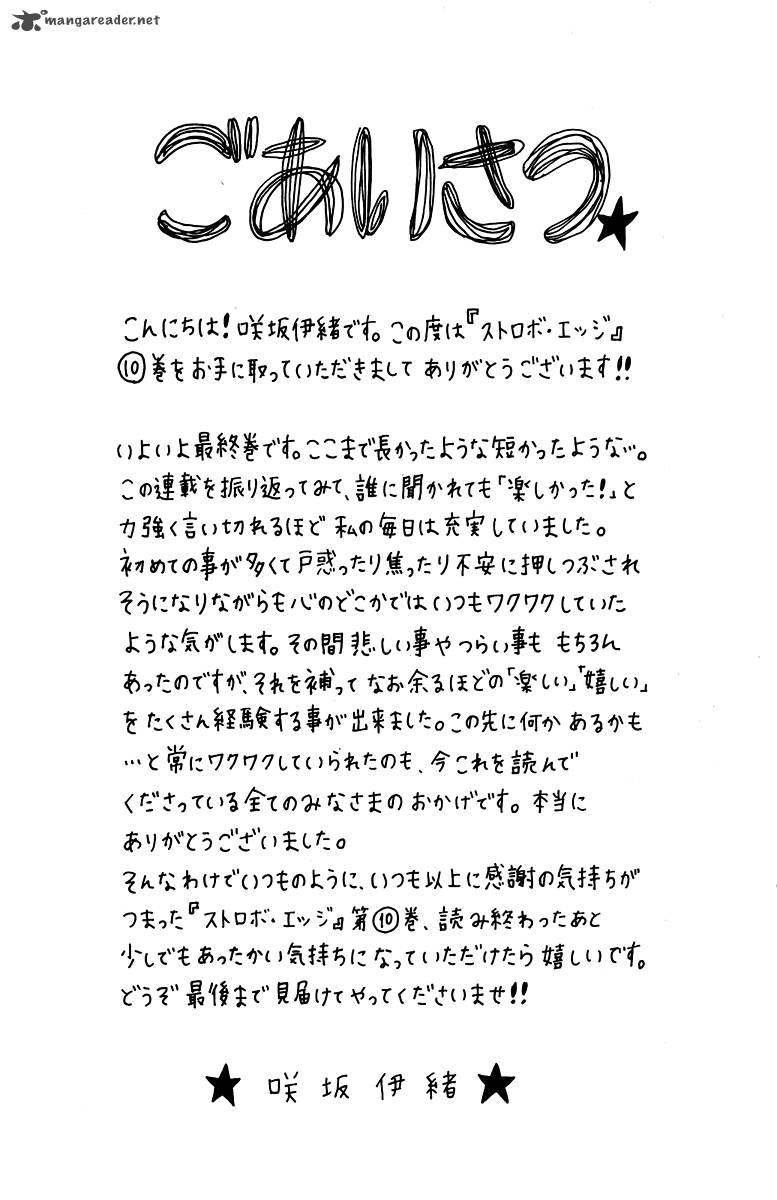 mangareader.net
ごあいさつ★
こんにちは!咲坂伊緒です。この度は『ストロボ・エッジ』
⑩巻をお手に取っていただきまして ありがとうございます!!
いよいよ最終巻です。ここまで長かったような短かったような…。
この連載を振り返ってみて、誰に聞かれても「楽しかった!」と
力強く言い切れるほど 私の毎日は充実していました。
初めての事が多くて戸惑ったり焦ったり不安に押しつぶされ
そうになりながらも心のどこかではいつもワクワクしていた
ような気がします。その間悲しい事やつらい事も もちろん
あったのですが、それを補って なお余るほどの「楽しい」「嬉しい」
をたくさん経験する事が出来ました。この先に何か あるかも
…と常にワクワクしていられたのも、今これを読んで
くださっている全てのみなさまの おかげです。本当に
ありがとうございました。
そんなわけでいつものように、いつも以上に感謝の気持ちが
つまった『ストロボ・エッジ』第⑩巻、読み終わったあと
少しでもあったかい気持ちになっていただけたら嬉しいです。
どうぞ最後まで見届けてやってくださいませ!!
★ 咲坂伊緒 ★